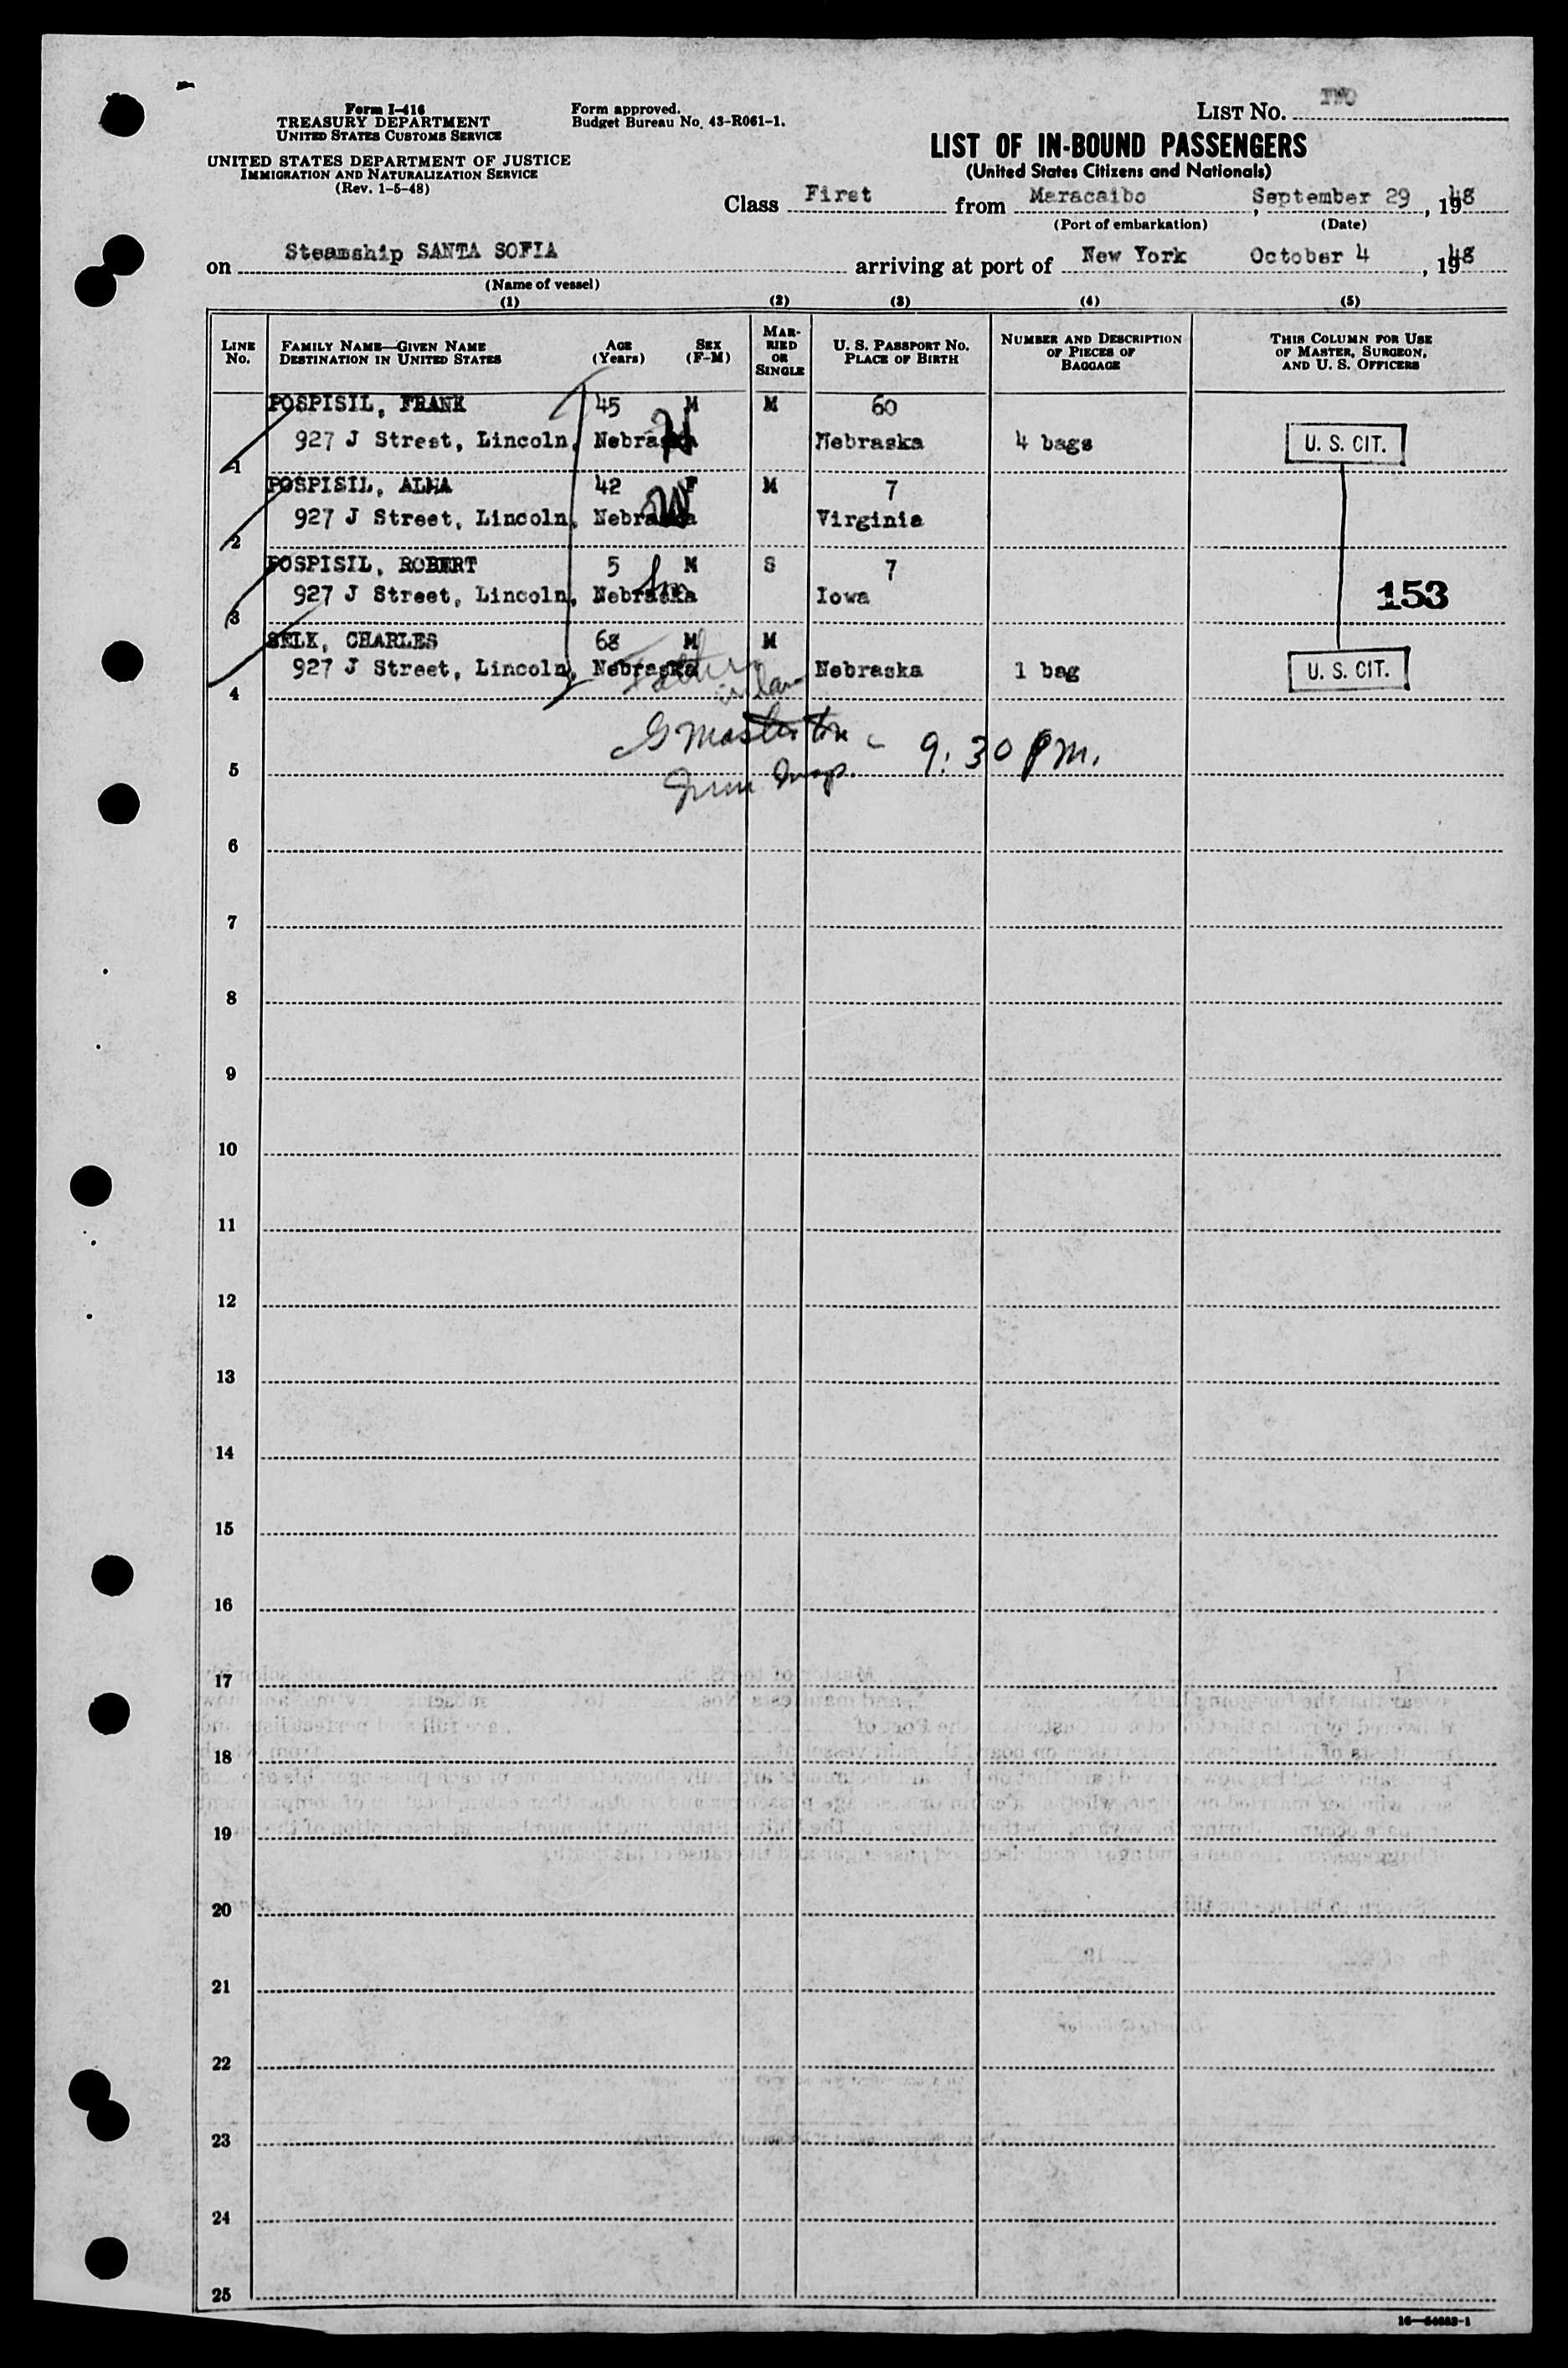 Form I-416
TREASURY DEPARTMENT
UNITED STATES CUSTOMS SERVICE
UNITED STATES DEPARTMENT OF JUSTICE
IMMIGRATION AND NATURALIZATION SERVICE
(Rev. 1-5-48)
Form approved.
Budget Bureau No. 43-R061-1.
LIST No. TWO
LIST OF IN-BOUND PASSENGERS
(United States Citizens and Nationals)
Class First from Maracaibo, September 29, 1948
(Port of embarkation) (Date)
on Steamship SANTA SOFIA arriving at port of New York October 4, 1948
(Name of vessel)
(1) (2) (3) (4) (5)
LINE No. FAMILY NAME—GIVEN NAME DESTINATION IN UNITED STATES AGE (Years) SEX (F-M) MARRIED OR SINGLE U. S. PASSPORT No. PLACE OF BIRTH NUMBER AND DESCRIPTION OF PIECES OF BAGGAGE THIS COLUMN FOR USE OF MASTER, SURGEON, AND U. S. OFFICERS
POSPISIL, FRANK 45 M M 60
1 927 J Street, Lincoln, Nebraska H Nebraska 4 bags U. S. CIT.
POSPISIL, ALMA 42 F M 7
2 927 J Street, Lincoln, Nebraska W Virginia
POSPISIL, ROBERT 5 M S 7
3 927 J Street, Lincoln, Nebraska Iowa 153
SELK, CHARLES 68 M M
4 927 J Street, Lincoln, Nebraska Nebraska 1 bag U. S. CIT.
Father in law
G Masterton - 9:30 PM.
5 Imm Insp.
6
7
8
9
10
11
12
13
14
15
16
17
18
19
20
21
22
23
24
25